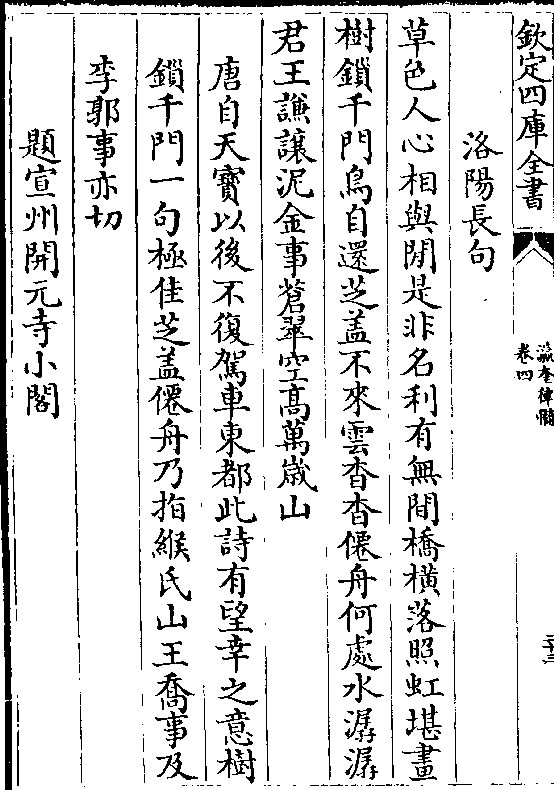 欽定四庫全書
瀛奎律髓
卷四
三十三
洛陽長句
草色人心相與閒是非名利有無間橋橫落照虹堪畫
樹鎖千門鳥自還芝盖不來雲杳杳僊舟何處水潺潺
君王謙讓泥金事蒼翠空髙萬嵗山
唐自天寳以後不復駕車東都此詩有望幸之意樹
鎖千門一句極佳芝盖僊舟乃指緱氏山王喬事及
李郭事亦切
題宣州開元寺小閣